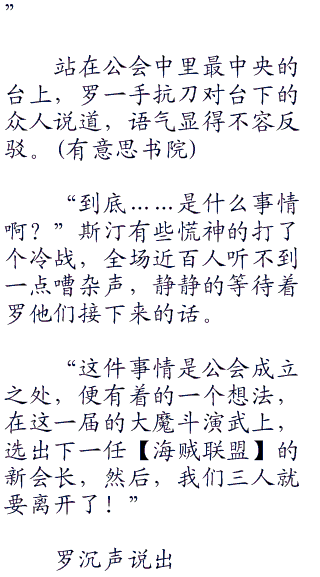 ”
站在公会中里最中央的
台上，罗一手抗刀对台下的
众人说道，语气显得不容反
驳。(有意思书院)
“到底……是什么事情
啊？”斯汀有些慌神的打了
个冷战，全场近百人听不到
一点嘈杂声，静静的等待着
罗他们接下来的话。
“这件事情是公会成立
之处，便有着的一个想法，
在这一届的大魔斗演武上，
选出下一任【海贼联盟】的
新会长，然后，我们三人就
要离开了！”
罗沉声说出